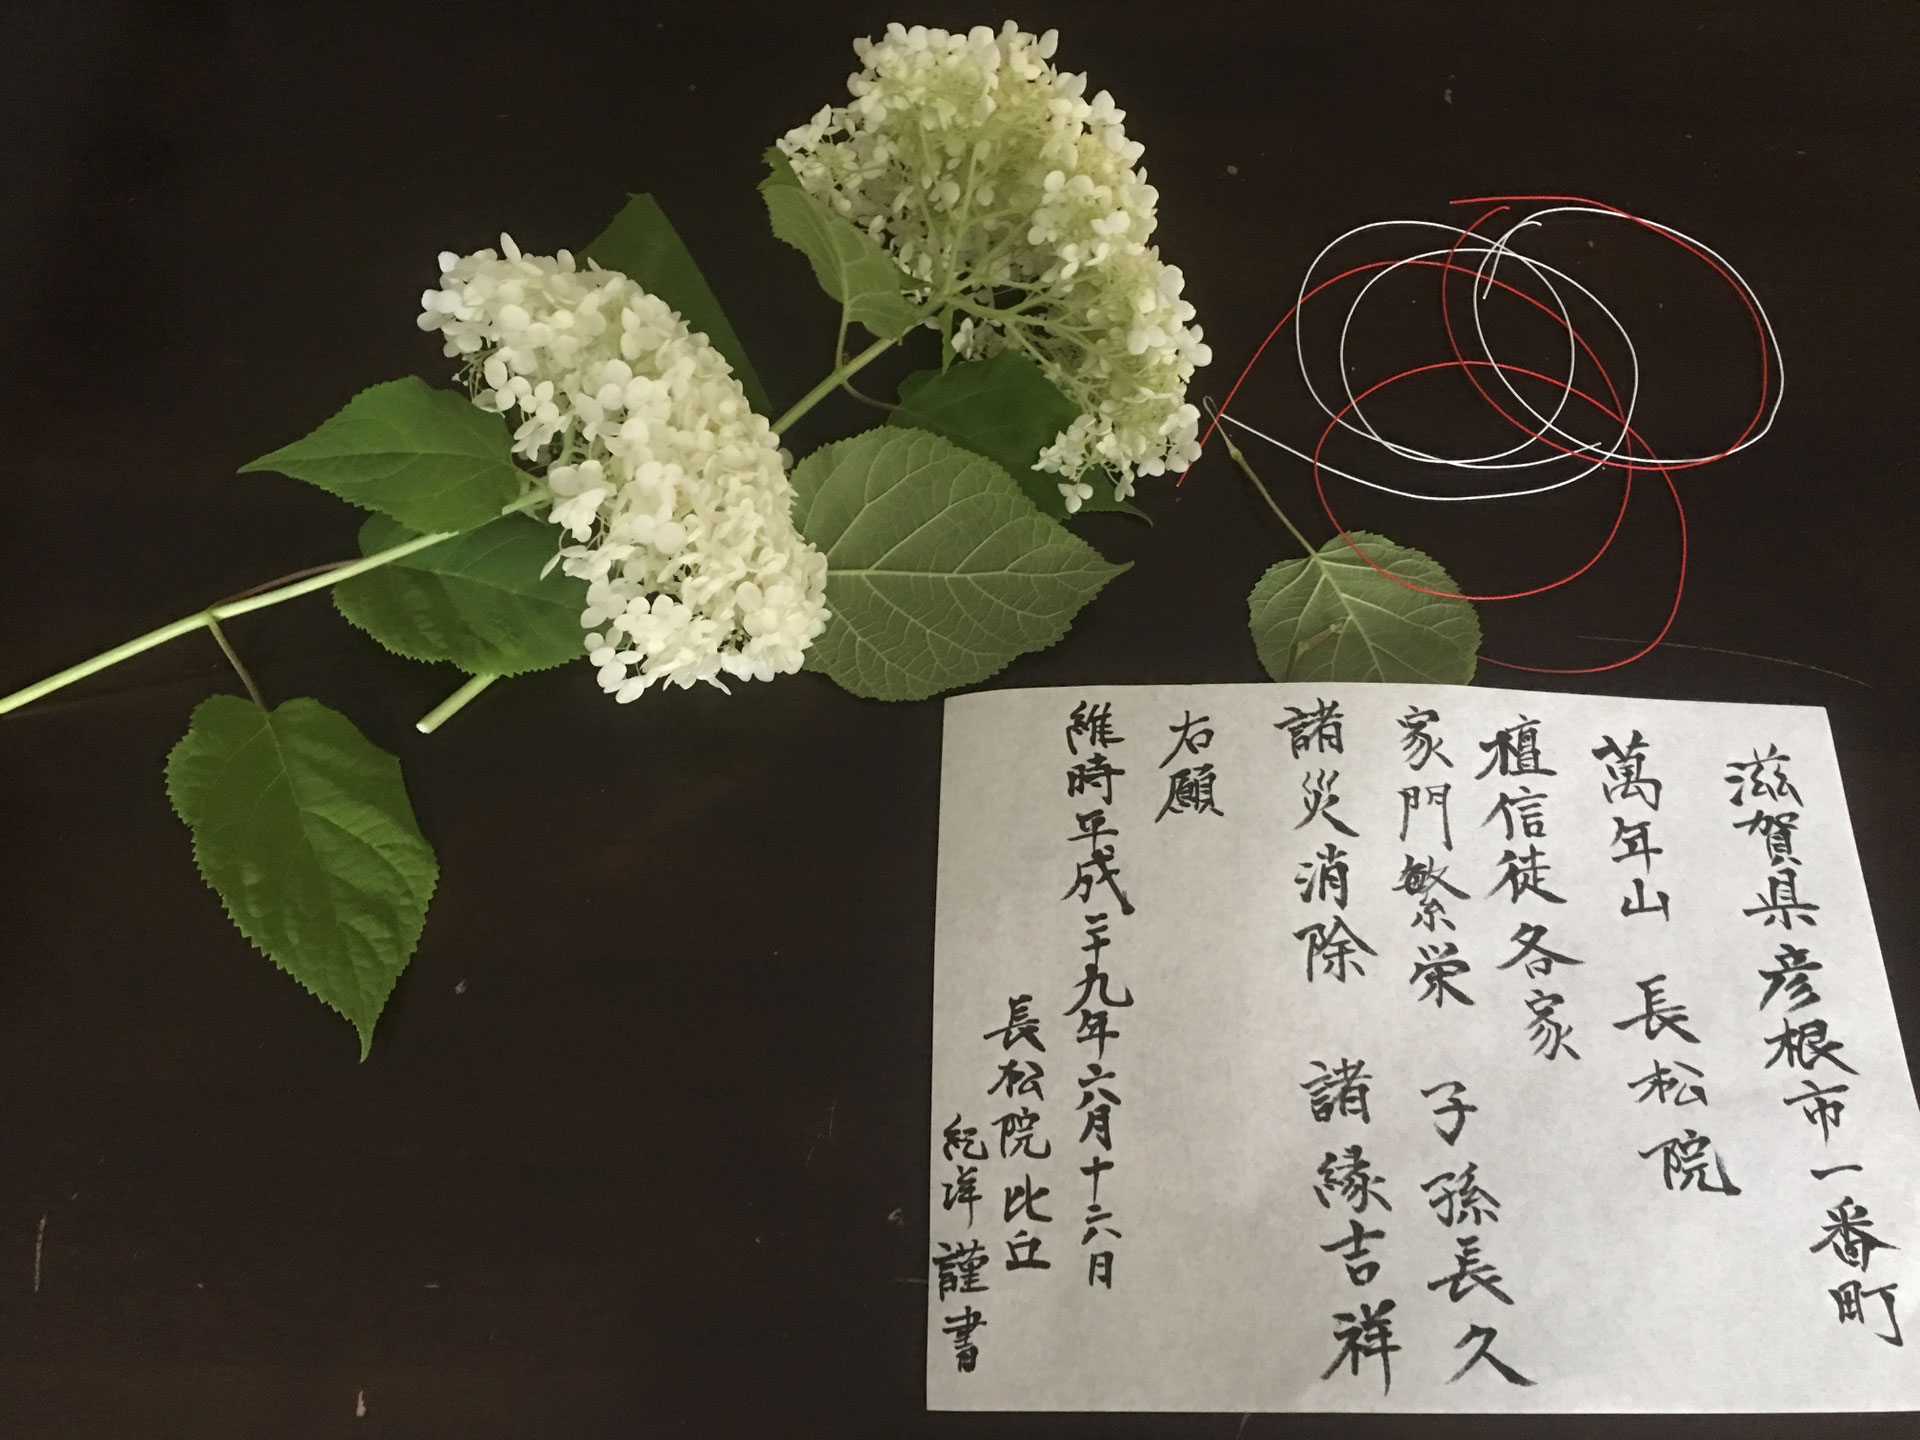 滋賀県彦根市一番町
萬年山 長松院
檀信徒各家
家門繁栄 子孫長久
諸災消除 諸縁吉祥
右願
維時平成二十九年六月十六日
長松院比丘
紀洋 謹書